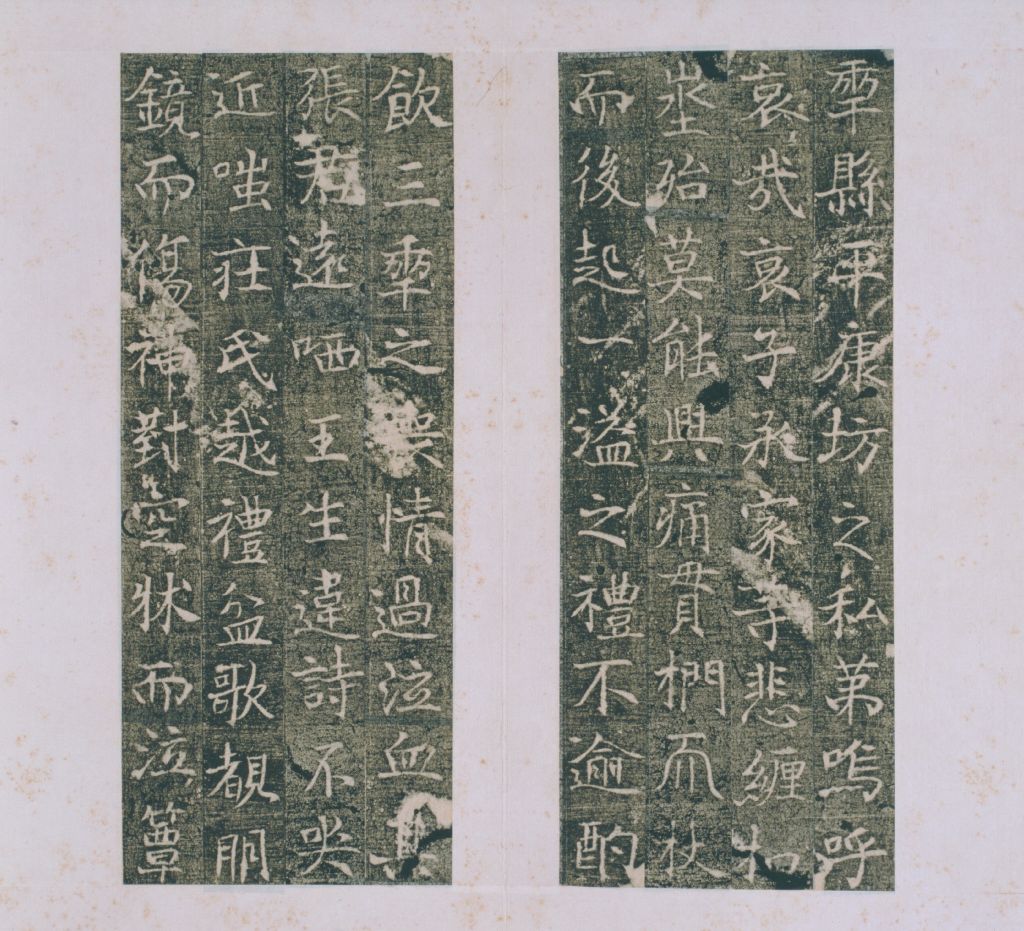 𠡦縣平康坊之私第嗚呼
哀哉哀子承家等悲纏扣
埊殆莫能興痛貫捫𠀑杖
而後起一溢之禮不逾酌
飲三𠡦之喪情過泣血其
張君遠哂王生違詩不哭
近嗤莊氏越禮盆歌覩明
鏡而傷神對空牀而泣簟